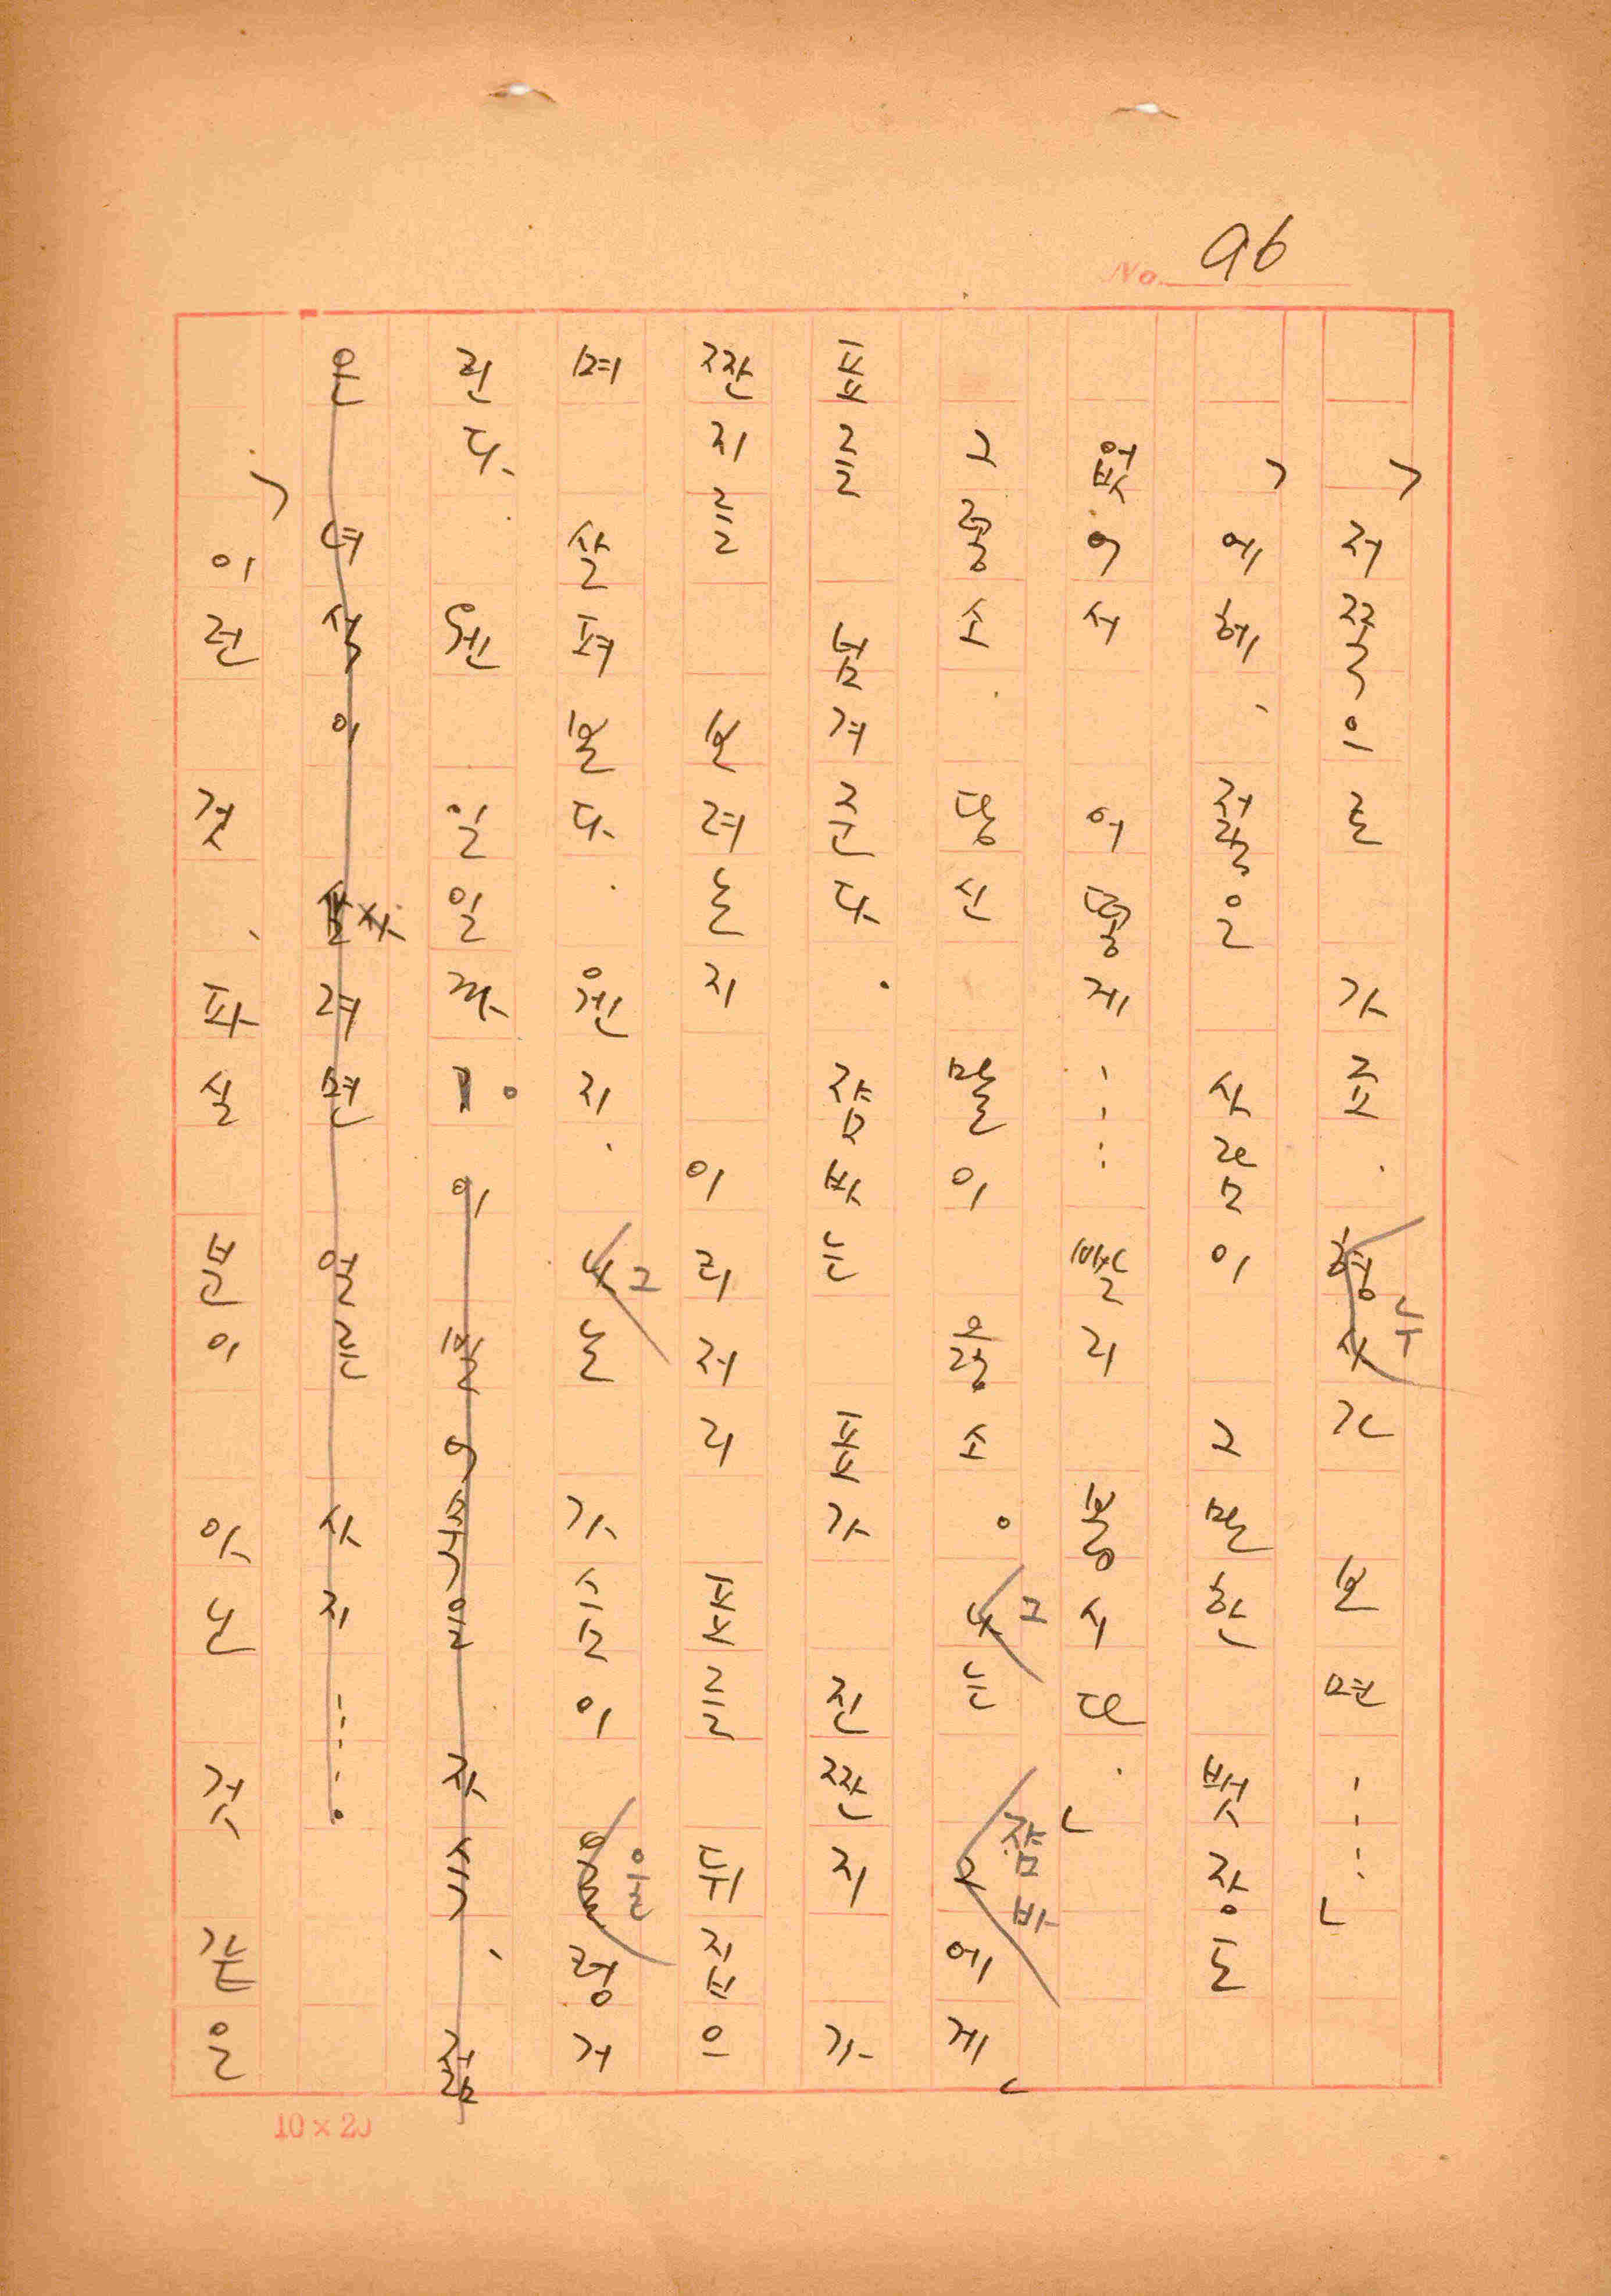 96
No.
「저쪽으로 가죠. 형사 누 긴 보면……」
「에헤, 젊은 사람이 그만한 뱃장도
없어서 어떻게…… 빨리 봅시다.」
그렇소. 당신 말이 옳소. 나 그 는 오 잠바 에게
표를 넘겨준다. 잠바는 표가 진짠지 가
짠지를 보려는지 이리저리 표를 뒤집으
며 살펴본다. 웬지, 나 그 는 가슴이 울 울 렁거
린다. 웬 일일까. 이 빌어먹을 자식, 젊
은 녀석이 사려면 얼른 사지…….
「이런 것, 파실 분이 아닌 것 같은
10×20